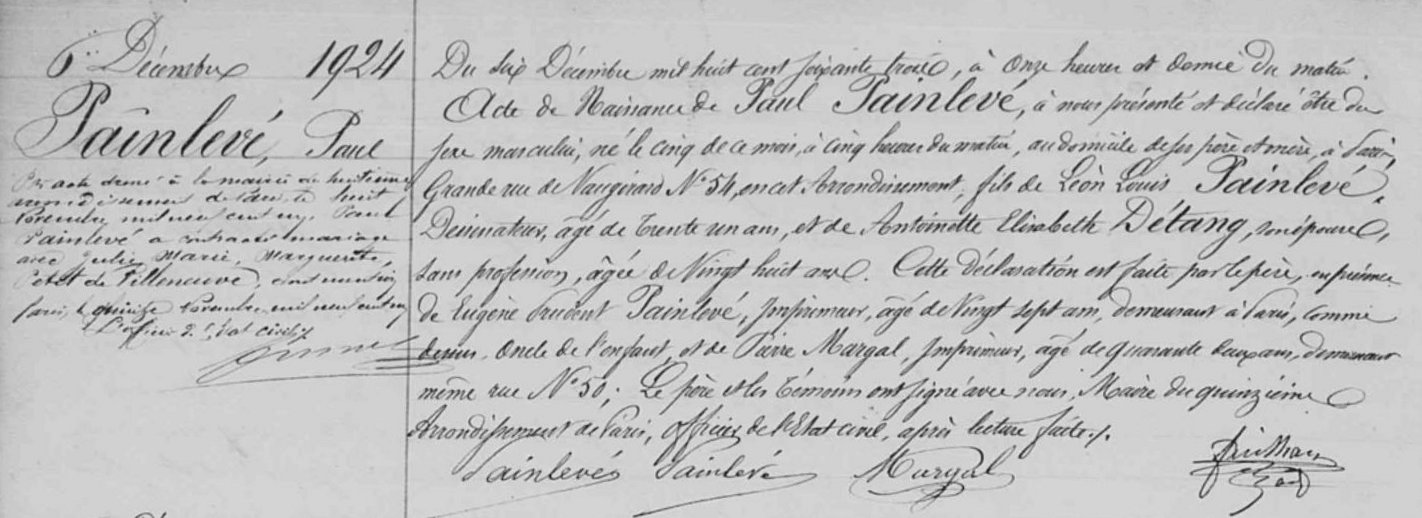 6 Décembre 1924
Painlevé, Paul
Par acte dressé à la mairie du huitième
arrondissement de Paris, le huit
Novembre mil neuf cent un, Paul
Painlevé a contracté mariage
avec Julie, Marie, Marguerite,
Petit de Villeneuve, dont mention
Paris, le quinze Novembre mil neuf cent un
L'officier de l'état civil
Du six Décembre mil huit cent soixante trois, à onze heures et demie du matin.
Acte de Naissance de Paul Painlevé, à nous présenté et déclaré être du
sexe masculin, né le cinq de ce mois, à cinq heures du matin, au domicile de ses père et mère, à Paris,
Grande rue de Vaugirard N° 54, en cet Arrondissement, fils de Léon Louis Painlevé,
Dessinateur, âgé de trente un ans, et de Antoinette Elisabeth Détang, son épouse,
sans profession, âgée de Vingt huit ans. Cette déclaration est faite par le père, en présence
de Eugène Prudent Painlevé, Imprimeur, âgé de Vingt sept ans, demeurant à Paris, comme
dessus, Oncle de l'enfant, et de Pierre Margal, Imprimeur, âgé de quarante deux ans, demeurant
même rue N° 50; Le père et les témoins ont signé avec nous, Maire du quinzième
Arrondissement de Paris, officier de l'Etat civil, après lecture faite ./.
Painlevé Painlevé Margal